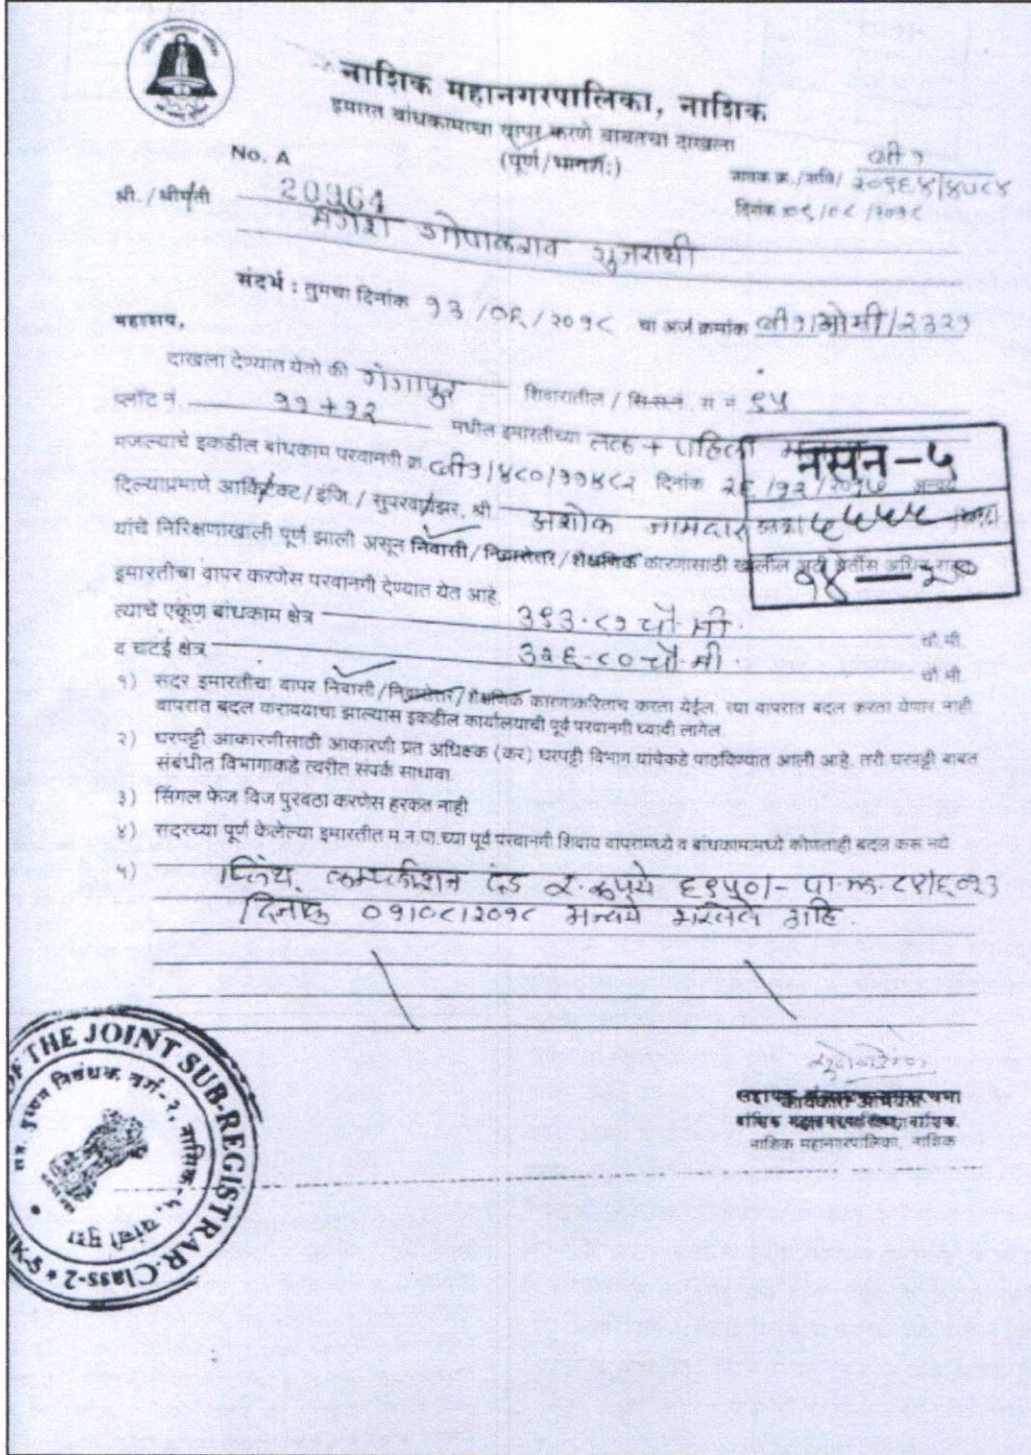 नाशिक महानगरपालिका, नाशिक
इमारत बांधकामाचा वापर करणे बाबतचा दाखला
(पूर्ण/भागशः)
No. A
20964
जावक क्र./नावि/ सी१
२०९६४/४५८४
दिनांक ०९/०८/२०१८
श्री./श्रीमती
मंगेश गोपाळराव गुजराथी
संदर्भ : तुमचा दिनांक १३/०६/२०१८ चा अर्ज क्रमांक सी१/ओसी/२३२१
महाशय,
दाखला देण्यात येतो की गंगापूर शिवारातील / सि.स.नं. स.नं. ९५
प्लॉट नं. ११+१२ मधील इमारतीच्या तळ + पहिला
मजल्याचे इकडील बांधकाम परवानगी क्र. सी१/४८०/११४८२ दिनांक २६/१२/२०१७ अन्वये
दिल्याप्रमाणे आर्किटेक्ट/इंजि./ सुपरवायझर, श्री. अशोक जामदार
यांचे निरिक्षणाखाली पूर्ण झाली असून निवासी/निवासेत्तर/शैक्षणिक कारणासाठी खालील अटी शर्तीस अधिन राहून
इमारतीचा वापर करणेस परवानगी देण्यात येत आहे.
नसन-५
१४ — २०
त्याचे एकूण बांधकाम क्षेत्र ३९३.८१ चौ.मी. चौ.मी.
व चटई क्षेत्र ३२६.८० चौ.मी. चौ.मी.
१) सदर इमारतीचा वापर निवासी/निवासेत्तर/शैक्षणिक कारणाकरिताच करता येईल. त्या वापरात बदल करता येणार नाही
वापरात बदल करावयाचा झाल्यास इकडील कार्यालयाची पूर्व परवानगी घ्यावी लागेल
२) घरपट्टी आकारणीसाठी आकारणी प्रत अधिक्षक (कर) घरपट्टी विभाग यांचेकडे पाठविण्यात आली आहे. तरी घरपट्टी बाबत
संबंधीत विभागाकडे त्वरीत संपर्क साधावा
३) सिंगल फेज विज पुरवठा करणेस हरकत नाही
४) सदरच्या पूर्ण केलेल्या इमारतीत म.न.पा.च्या पूर्व परवानगी शिवाय वापरामध्ये व बांधकामामध्ये कोणताही बदल करू नये.
५) प्लिंथ कम्प्लीशन दंड र.रुपये ६९५०/- पा.क्र. ८४/६०१३
दिनांक ०१/०८/२०१८ अन्वये भरलेले आहे.
कार्यकारी अभियंता
नाशिक महानगरपालिका, नाशिक
OF THE JOINT SUB-REGISTRAR-Class-2 * NSK-5
सह. दुय्यम निबंधक, वर्ग-२, नाशिक-५, यांची मुद्रा